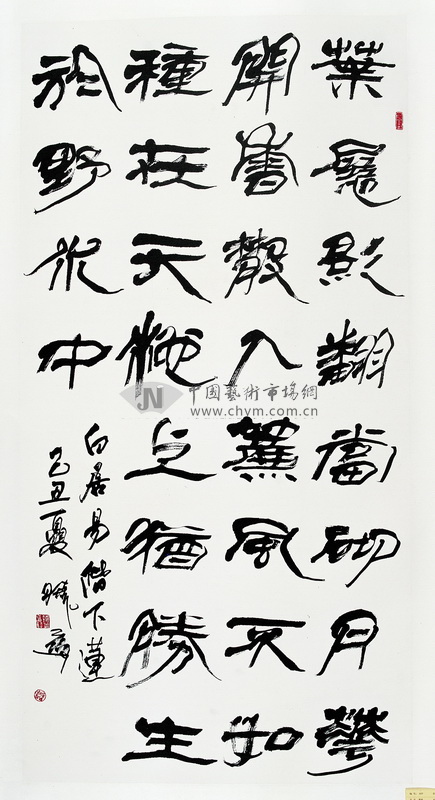 葉展影翻當砌月華
開香散入簾風不如
種在天池上猶勝生
於野水中
白居易階下蓮
己丑夏
JN 中國藝術市場網
www.chvm.com